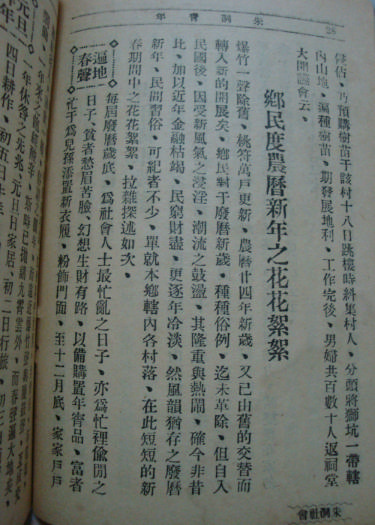 28
朱洞青年
乃預購樹苗于該村十八日跳樓時糾集村人、分頭將獅坑一帶轄
內山地、遍種樹苗、期發展地利、工作完後、男婦共百數十人返祠堂
大開議會云。
鄉民度農曆新年之花花絮絮
爆竹一聲除舊、桃符萬戶更新、農曆廿四年新歲、又已由舊的交替而
轉入新的開展矣、鄉民對于廢曆新歲、種種俗例、迄未革除、但自入
民國後、因受新風氣之浸淫、潮流之鼓盪、其隆重與熱鬧、確今非昔
比、加以近年金融枯竭、民窮財盡、更逐年冷淡、然風韻猶存之廢曆
新年、民間習俗、可紀者不少、單就本鄉轄內各村落、在此短短的新
春期間中之花花絮絮、拉雜探述如次、
遍地春聲
每屆廢曆歲底、為社會人士最忙亂之日子、亦為忙裡偷閒之
日子、貧者愁眉苦臉、幻想生財有路、以備購置年寄品、富者
忙于為兒孫添置新衣履、粉飾門面、至十二月底、家家戶戶
元旦
年休咎之先兆、元旦日家居、初二日行
四日耕作、初五日
朱洞社會